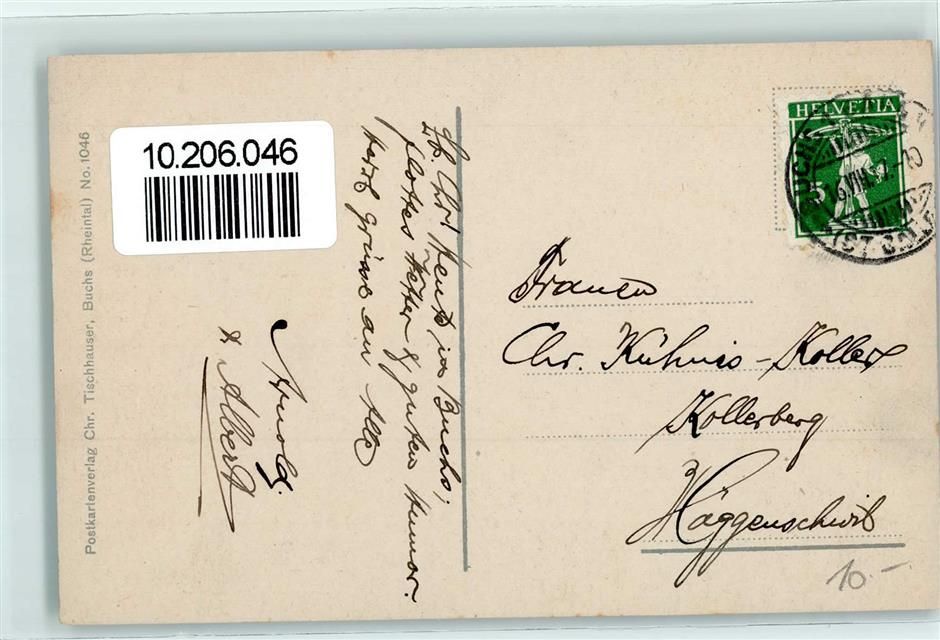 Postkartenverlag Chr. Tischhauser, Buchs (Rheintal) No. 1046
10.206.046
Lb. Chr! Heute in Buchs,
flottes Wetter & guten Humor.
Herzl Grüsse an Alle
Arnold.
& Albert
HELVETIA
5
BUCHS
(ST. GALLEN)
Frauen
Chr. Kühnis-Koller
Kollerberg
Häggenschwil
10.-